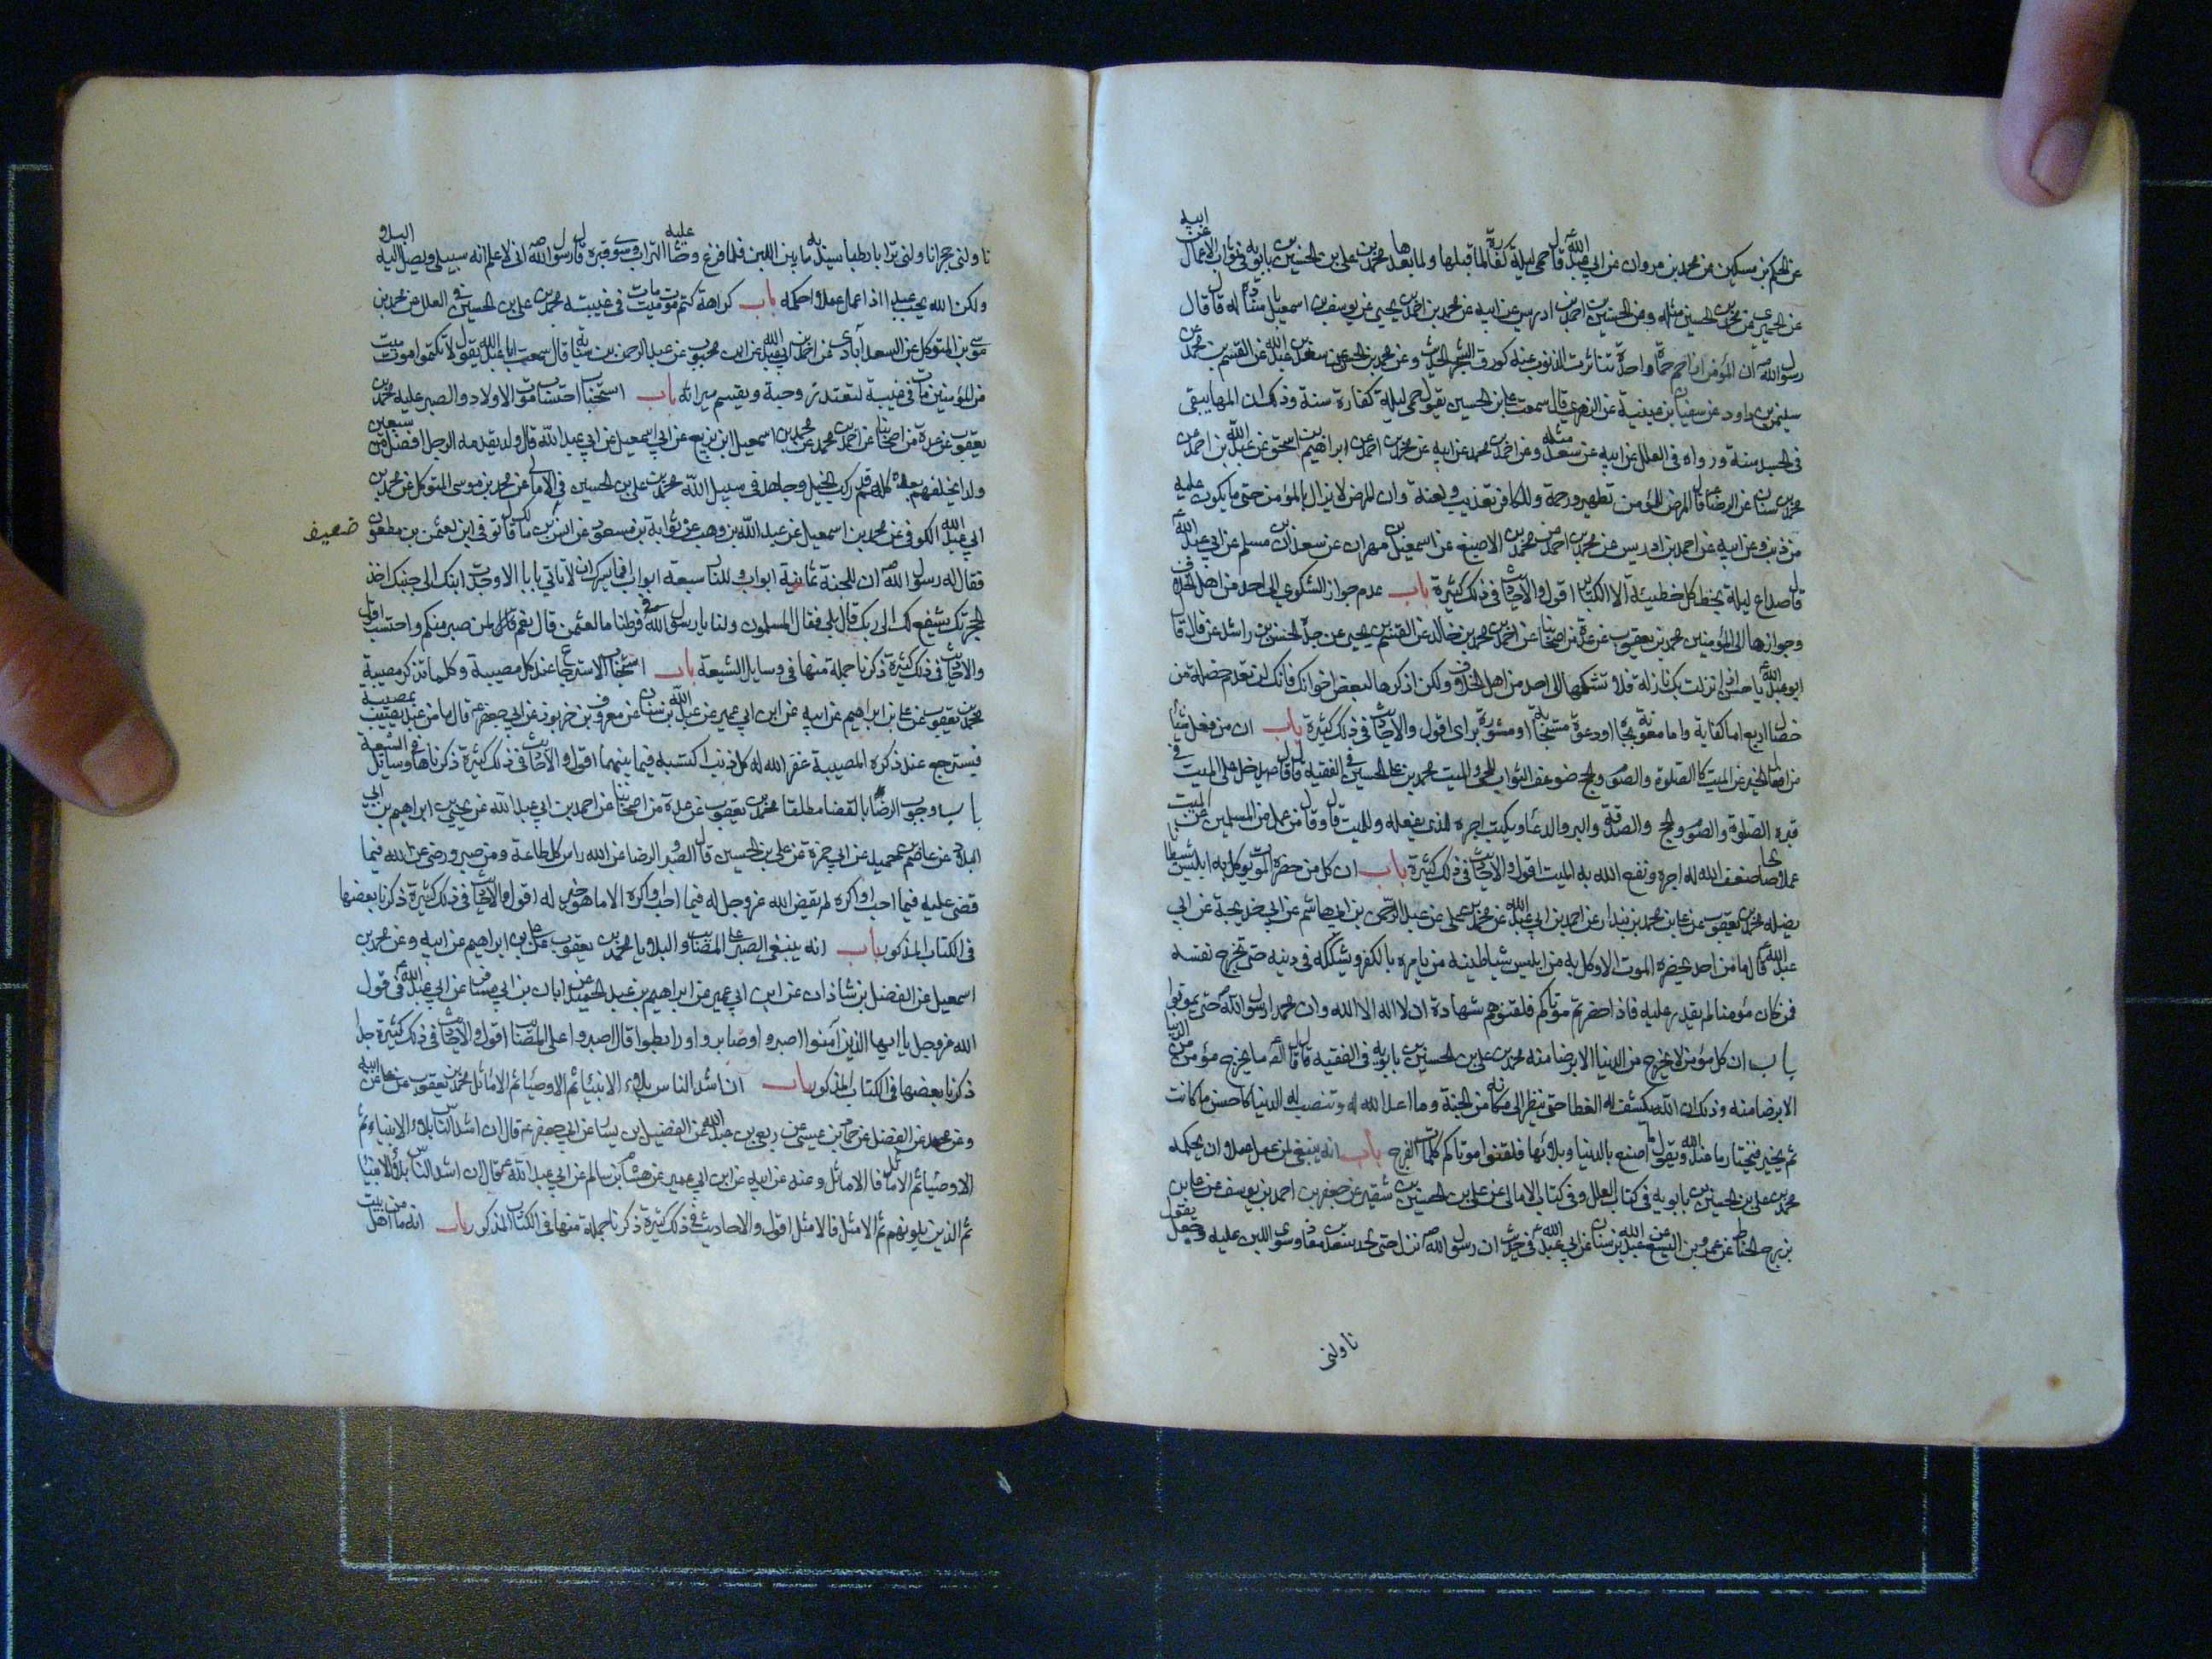 عن الحكم بن مسكين عن محمد بن مروان عن ابي عبد الله قال حمى ليلة كفارة لما قبلها ولما بعدها محمد بن علي بن الحسين بن بابويه في ثواب الاعمال عن ابيه
عن الحميري عن محمد بن الحسين مثله وعن الحسين بن احمد بن ادريس عن ابيه عن محمد بن احمد بن يحيى عن يوسف بن اسمعيل باسناد له قال قال
رسول الله ص ان المؤمن اذا حم حمة واحدة تناثرت الذنوب عنه كورق الشجر الحديث وعن محمد بن الحسن عن سعد بن عبد الله عن القسم بن محمد عن
سليمن بن داود عن سفيان بن عيينة عن الزهري قال سمعت علي بن الحسين يقول حمى ليلة كفارة سنة وذلك ان المها يبقى
في الجسد سنة ورواه في العلل عن ابيه عن سعد مثله وعن احمد بن محمد عن ابيه عن محمد بن احمد عن ابراهيم بن اسحق عن عبد الله بن احمد عن
محمد بن سنان عن الرضا ع قال المرض للمؤمن تطهير ورحمة وللكافر تعذيب ولعنة وان المرض لا يزال بالمؤمن حتى ما يكون عليه
من ذنب وعن ابيه عن احمد بن ادريس عن محمد بن احمد عن محمد بن الاصبغ عن اسمعيل بن مهران عن سعدان بن مسلم عن ابي عبد الله ع
قال صداع ليلة يحط كل خطيئة الا الكبائر اقول والاحاديث في ذلك كثيرة باب عدم جواز الشكوى الى احد من اهل الخلاف
وجوازها الى المؤمنين محمد بن يعقوب عن عدة من اصحابنا عن احمد بن محمد بن خالد عن القسم بن يحيى عن جده الحسن بن راشد عن قال قال
ابو عبد الله ع يا حسن اذا نزلت بك نازلة فلا تشكها الى احد من اهل الخلاف ولكن اذكرها لبعض اخوانك فانك لن تعدم خصلة من
خصال اربع اما كفاية واما معونة بجاه او دعوة مستجابة او مشورة براى اقول والاحاديث في ذلك كثيرة باب ان من فعل شيئا
من افعال الخير عن الميت كالصلوة والصوم والحج ضوعف الثواب للحي والميت محمد بن علي بن الحسين في الفقيه قال قال ص يدخل على الميت في
قبره الصلوة والصوم والحج والصدقة والبر والدعاء ويكتب اجره للذي يفعله وللميت قال وقال من عمل من المسلمين عن الميت
عملا صالحا ضعف الله له اجره ونفع الله به الميت اقول والاحاديث في ذلك كثيرة باب ان كل من حضره الموت يوكل به ابليس شيطانا
يضله محمد بن يعقوب عن علي بن محمد بن بندار عن احمد بن ابي عبد الله عن محمد بن علي عن عبد الرحمن بن ابي هاشم عن ابي خديجة عن ابي
عبد الله ع قال ما من احد يحضره الموت الا وكل به من ابليس شياطينه من يامره بالكفر ويشككه في دينه حتى تخرج نفسه
فمن كان مؤمنا لم يقدر عليه فاذا حضرتم موتاكم فلقنوهم شهادة ان لا اله الا الله وان محمدا رسول الله ص حتى يموتوا
باب ان كل مؤمن لا يخرج من الدنيا الا برضا منه محمد بن علي بن الحسين بن بابويه في الفقيه قال قال الص ما يخرج مؤمن من الدنيا
الا برضا منه وذلك ان الله يكشف له الغطا حتى ينظر الى مكانه من الجنة وما اعد الله له وتنصب له الدنيا كاحسن ما كانت
ثم يخير فيختار ما عند الله ويقول ما اصنع بالدنيا وبلائها فلقنوا موتاكم كلمات الفرج باب انه ينبغي لمن عمل عملا ان يحكمه
محمد بن علي بن الحسين بن بابويه في كتاب العلل وفي كتاب الامالي عن علي بن الحسين بن شقير عن جعفر بن احمد بن يوسف عن علي بن
بزرج الحناط عن عمرو بن اليسع عن عبد الله بن سنان عن ابي عبد الله ع في حديث ان رسول الله ص نزل حتى لحد سعد بن معاذ وسوى اللبن عليه وجعل يقول
ناولني
ناولني حجرا ناولني ترابا رطبا يسد به ما بين اللبن فلما فرغ وحثا التراب عليه وسوى قبره قال رسول الله ص اني لاعلم انه سيبلى ويصل اليه البلاء
ولكن الله يحب عبدا اذا عمل عملا احكمه باب كراهة كتم موت ميت مات في غيبته محمد بن علي بن الحسين في العلل عن محمد بن
موسى بن المتوكل عن السعدآبادي عن احمد بن ابي عبد الله عن ابن محبوب عن عبد الرحمن بن سيابة قال سمعت ابا عبد الله يقول لا تكتموا موت ميت
من المؤمنين مات في غيبة لتعتد زوجته ويقسم ميراثه باب استحباب احتساب موت الاولاد والصبر عليه محمد بن
يعقوب عن عدة من اصحابنا عن احمد بن محمد عن محمد بن اسمعيل ابن بزيع عن ابي اسمعيل عن ابي عبد الله قال ولد يقدمه الرجل افضل من سبعين
ولدا يخلفهم بعده كلهم قد ركب الخيل وجاهد في سبيل الله محمد بن علي بن الحسين في الامالي عن محمد بن موسى المتوكل عن محمد بن
ابي عبد الله الكوفي عن محمد بن اسمعيل عن عبد الله بن وهب عن ثوابة بن مسعود عن انس بن مالك قال توفي ابن لعثمن بن مظعون ضعيف
فقال له رسول الله ص ان للجنة ثمانية ابواب وللنار سبعة ابواب افما يسرك ان لا تاتي بابا الا وجدت ابنك الى جنبك اخذ
بحجزتك يشفع لك الى ربك قال بلى فقال المسلمون ولنا يا رسول الله في فرطنا ما لعثمن قال نعم لمن صبر منكم واحتسب اقول
والاحاديث في ذلك كثيرة ذكرنا جملة منها في وسايل الشيعة باب استحباب الاسترجاع عند كل مصيبة وكلما تذكر مصيبة
محمد بن يعقوب عن علي بن ابراهيم عن ابيه عن ابن ابي عمير عن عبد الله بن سنان عن معروف بن خربوذ عن ابي جعفر ع قال ما من عبد يصيب بمصيبة
فيسترجع عند ذكره المصيبة غفر الله له كل ذنب اكتسبه فيما بينهما اقول والاحاديث في ذلك كثيرة ذكرناها في وسايل الشيعة
باب وجوب الرضا بالقضا مطلقا محمد بن يعقوب عن عدة من اصحابنا عن احمد بن ابي عبد الله عن يحيى بن ابراهيم بن ابي
البلاد عن عاصم بن حميد عن ابي حمزة عن علي بن الحسين قال الصبر والرضا عن الله راس كل طاعة ومن صبر ورضي عن الله فيما
قضى عليه فيما احب او اكره لم يقض الله عز وجل له فيما احب او اكره الا ما هو خير له اقول والاحاديث في ذلك كثيرة ذكرنا بعضها
في الكتاب المذكور باب انه ينبغي الصبر على المصائب والبلايا محمد بن يعقوب عن علي بن ابراهيم عن ابيه وعن محمد بن
اسمعيل عن الفضل بن شاذان عن ابن ابي عمير عن ابراهيم بن عبد الحميد عن ابان بن ابي مسافر عن ابي عبد الله ع في قول
الله عز وجل يا ايها الذين آمنوا اصبروا وصابروا ورابطوا قال اصبروا على المصائب اقول والاحاديث في ذلك كثيرة جدا
ذكرنا بعضها في الكتاب المذكور باب ان اشد الناس بلاء الانبياء ثم الاوصياء ثم الاماثل محمد بن يعقوب عن علي عن ابيه
وعن محمد عن الفضل عن حماد بن عيسى عن ربعي بن عبد الله عن الفضيل بن يسار عن ابي جعفر ع قال ان اشد الناس بلاء الانبياء ثم
الاوصياء ثم الاماثل فالاماثل وعنه عن ابيه عن ابن ابي عمير عن هشام بن سالم عن ابي عبد الله ع قال ان اشد الناس بلاء الانبياء
ثم الذين يلونهم ثم الامثل فالامثل اقول والاحاديث في ذلك كثيرة ذكرنا جملة منها في الكتاب المذكور باب انه ما من اهل بيت